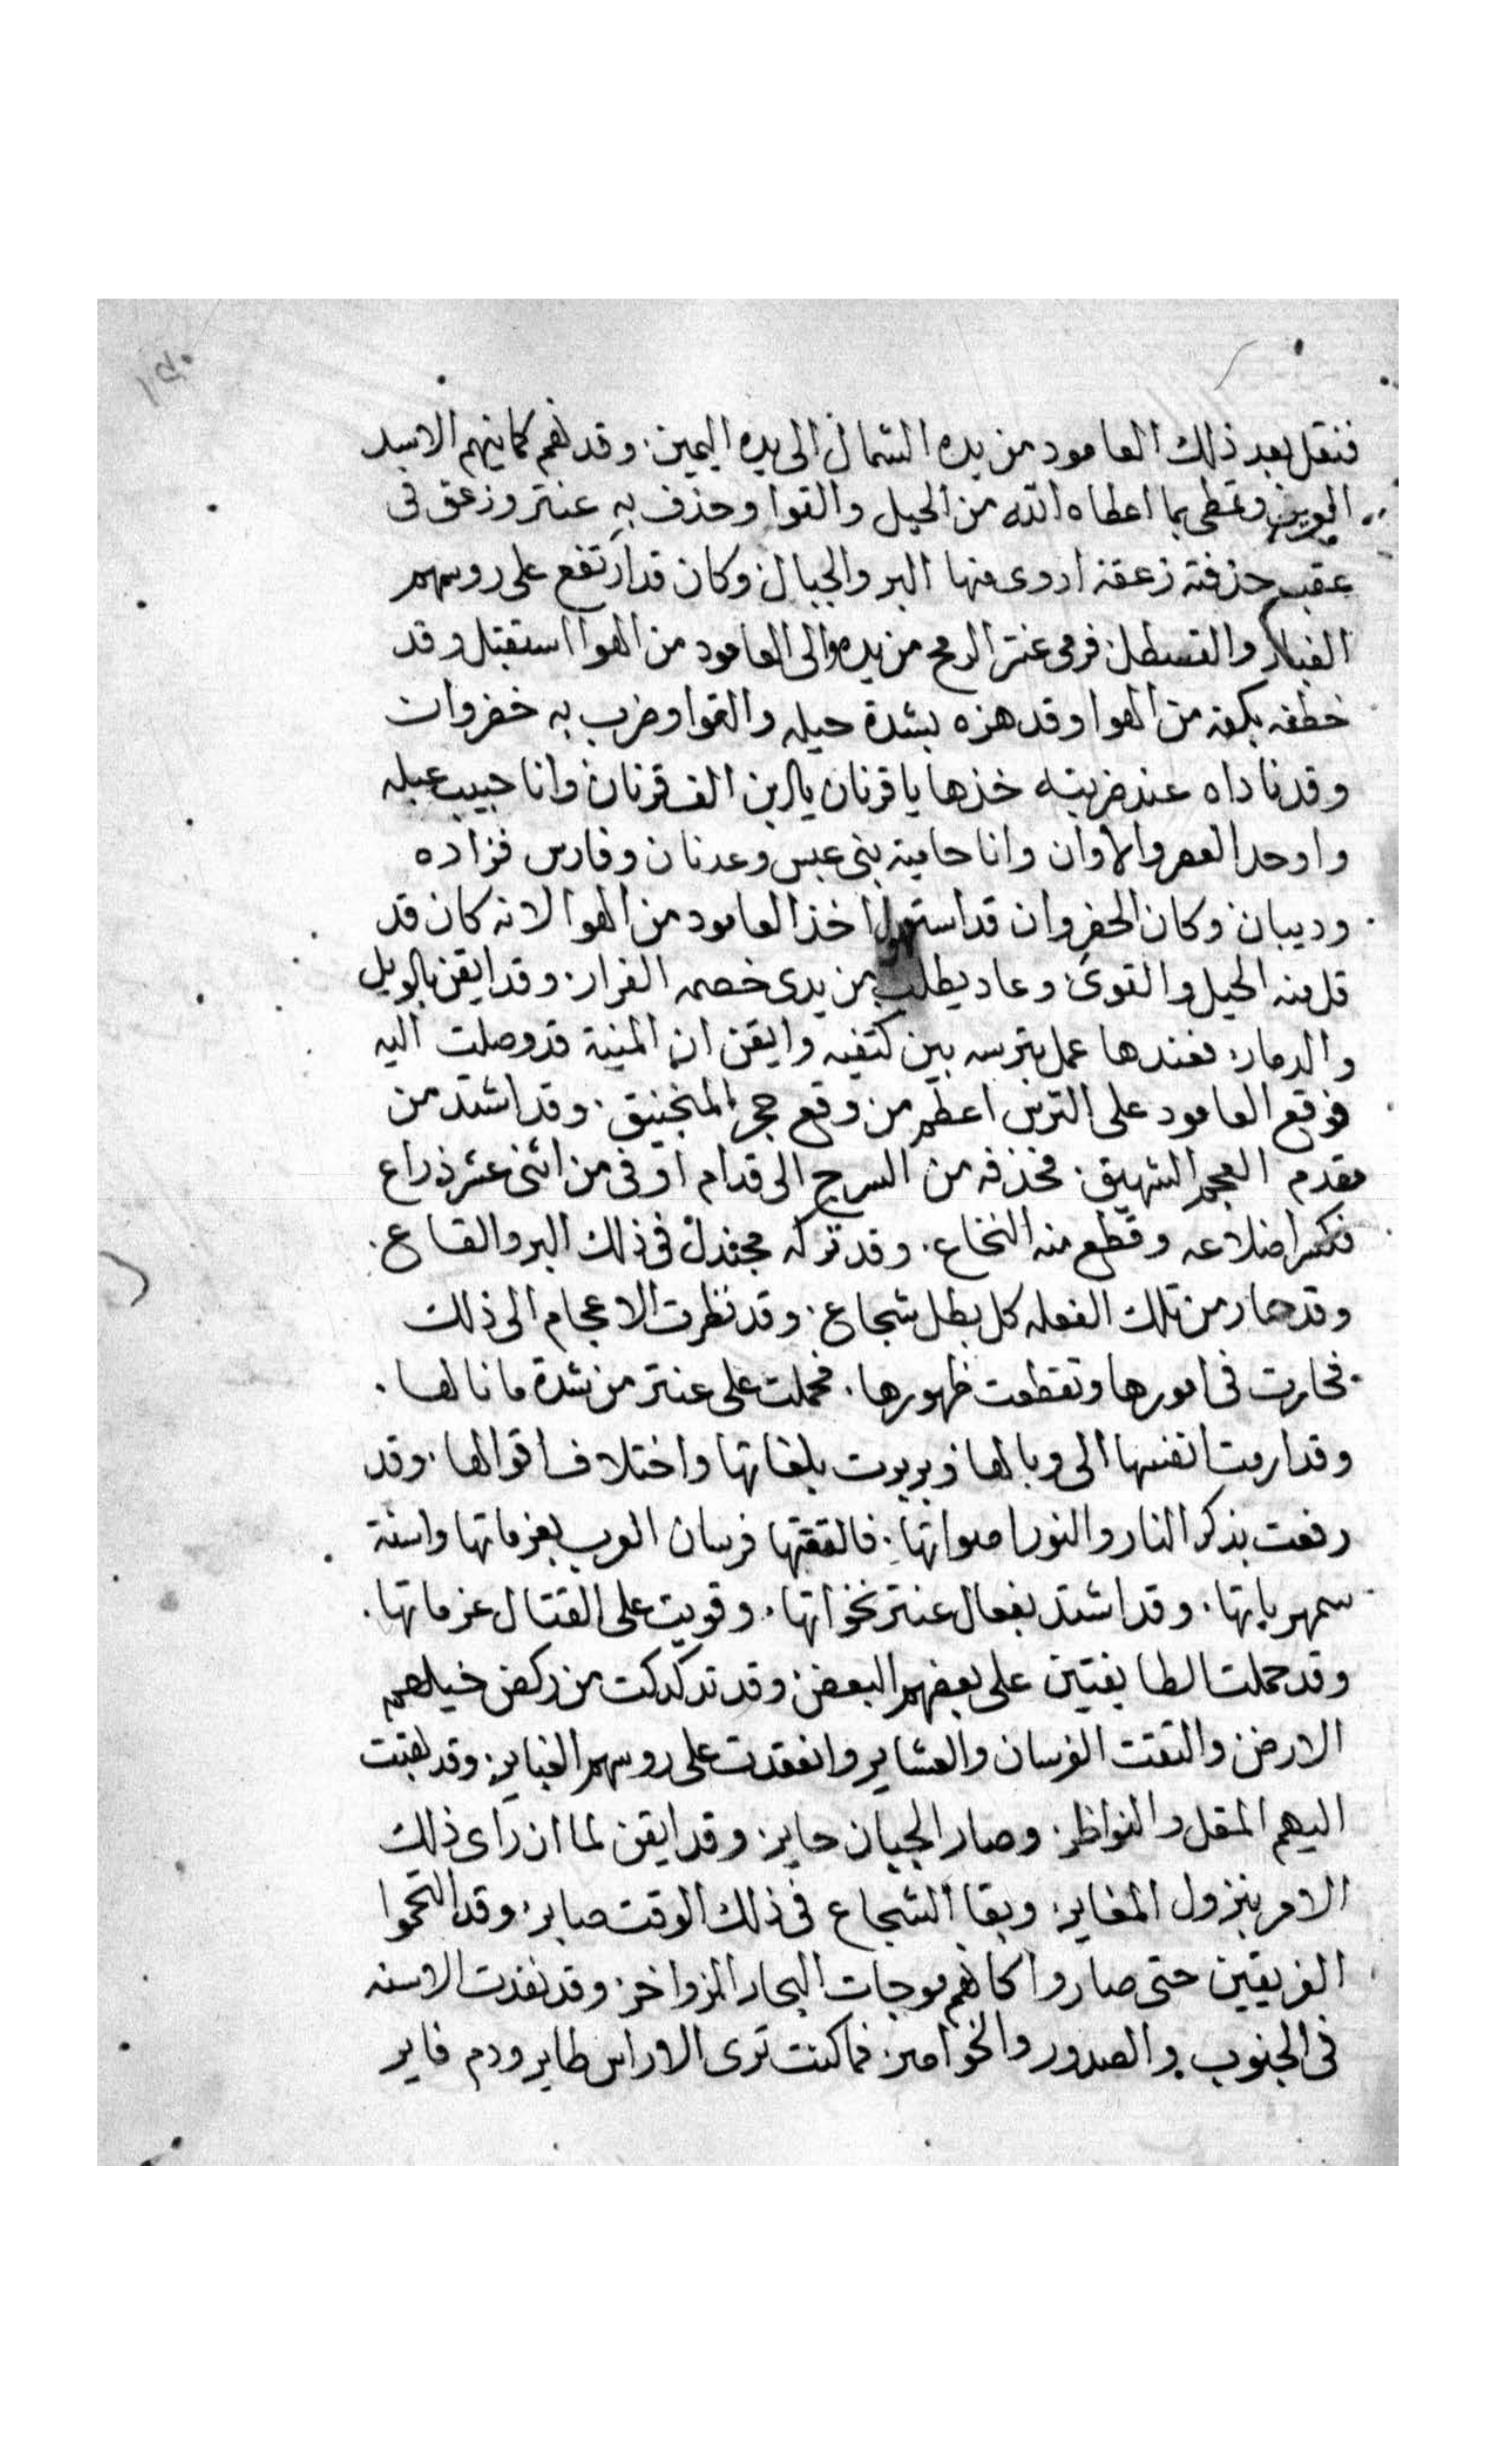 فنقل بعد ذلك العامود من يده الشمال الى يده اليمين. وقد نهم كاينهم الاسد
وتمطى بما اعطاه الله من الحيل والقوا وحذف به عنتر وزعق فى
عقب حذفته زعقه ادوى منها البر والجبال وكان قد ارتفع على روسهم
الغبار والقسطل فرمى عنتر الرمح من يده والى العامود من الهوا استقبل وقد
خطفه بكفه من الهوا وقد هزه بشدة حيله والقوا وضرب به خضروان
وقد ناداه عند ضربته خذها يا قرنان يابن الف قرنان وانا حبيب عبله
واوحد العصر والاوان وانا حامية بنى عبس وعدنان وفارس فزاده
وديبان وكان الخضروان قد استهول اخذ العامود من الهوا لانه كان قد
قل منه الحيل والقوى وعاد يطلب من يدى خصمه الفرار. وقد ايقن بالويل
والدمار. فعندها عمل بترسه بين كتفيه وايقن ان المنية قد وصلت اليه
فوقع العامود على الترس اعظم من وقع حجر المنجنيق. وقد اشتد من
مقدم العجم الشهيق. فحذفه من السرج الى قدام اوفى من اثنى عشر ذراع
فكسر اضلاعه وقطع منه النخاع. وقد تركه مجندل فى ذلك البر والقاع.
وقد حار من تلك الفعله كل بطل شجاع. وقد نظرت الاعجام الى ذلك
فحارت فى امورها وتقطعت ظهورها. فحملت على عنتر من شدة ما نالها.
وقد ارمت انفسها الى وبالها وبربرت بلغاتها واختلاف اقوالها. وقد
رفعت بذكر النار والنور اصواتها. فالتقتها فرسان العرب بعزماتها واسنة
سمهرياتها. وقد اشتد بفعال عنتر نخواتها. وقويت على القتال عزماتها.
وقد حملت الطايفتين على بعضهم البعض وقد تدكدكت من ركض خيلهم
الارض والتقت الفرسان والعشاير وانعقدت على روسهم الغباير. وقد
اليهم المقل والنواظر. وصار الجبان حاير. وقد ايقن لما ان راى ذلك
الامر بنزول المقاير. وبقا الشجاع فى ذلك الوقت صابر. وقد التحموا
الفريقين حتى صاروا كانهم موجات البحار الزواخر. وقد نفدت الاسنه
فى الجنوب والصدور والخواصر. فما كنت ترى الا راس طاير ودم فاير